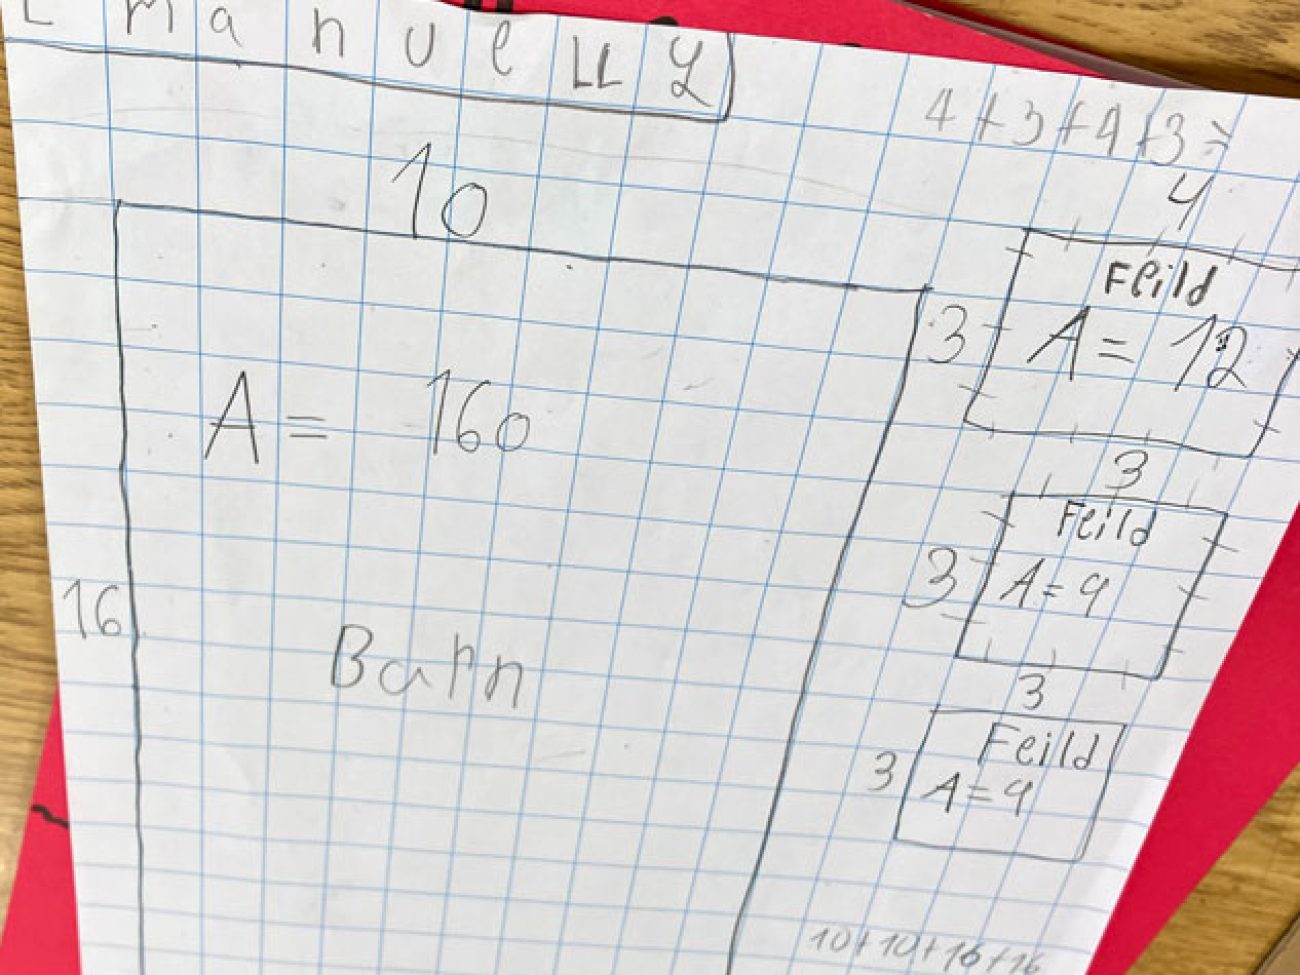 EmanueLLy
4+3+4+3=
10
4
Feild
3
A= 12
A= 160
3
Feild
3
A=9
16
Barn
3
Feild
3
A=9
10+10+16+16